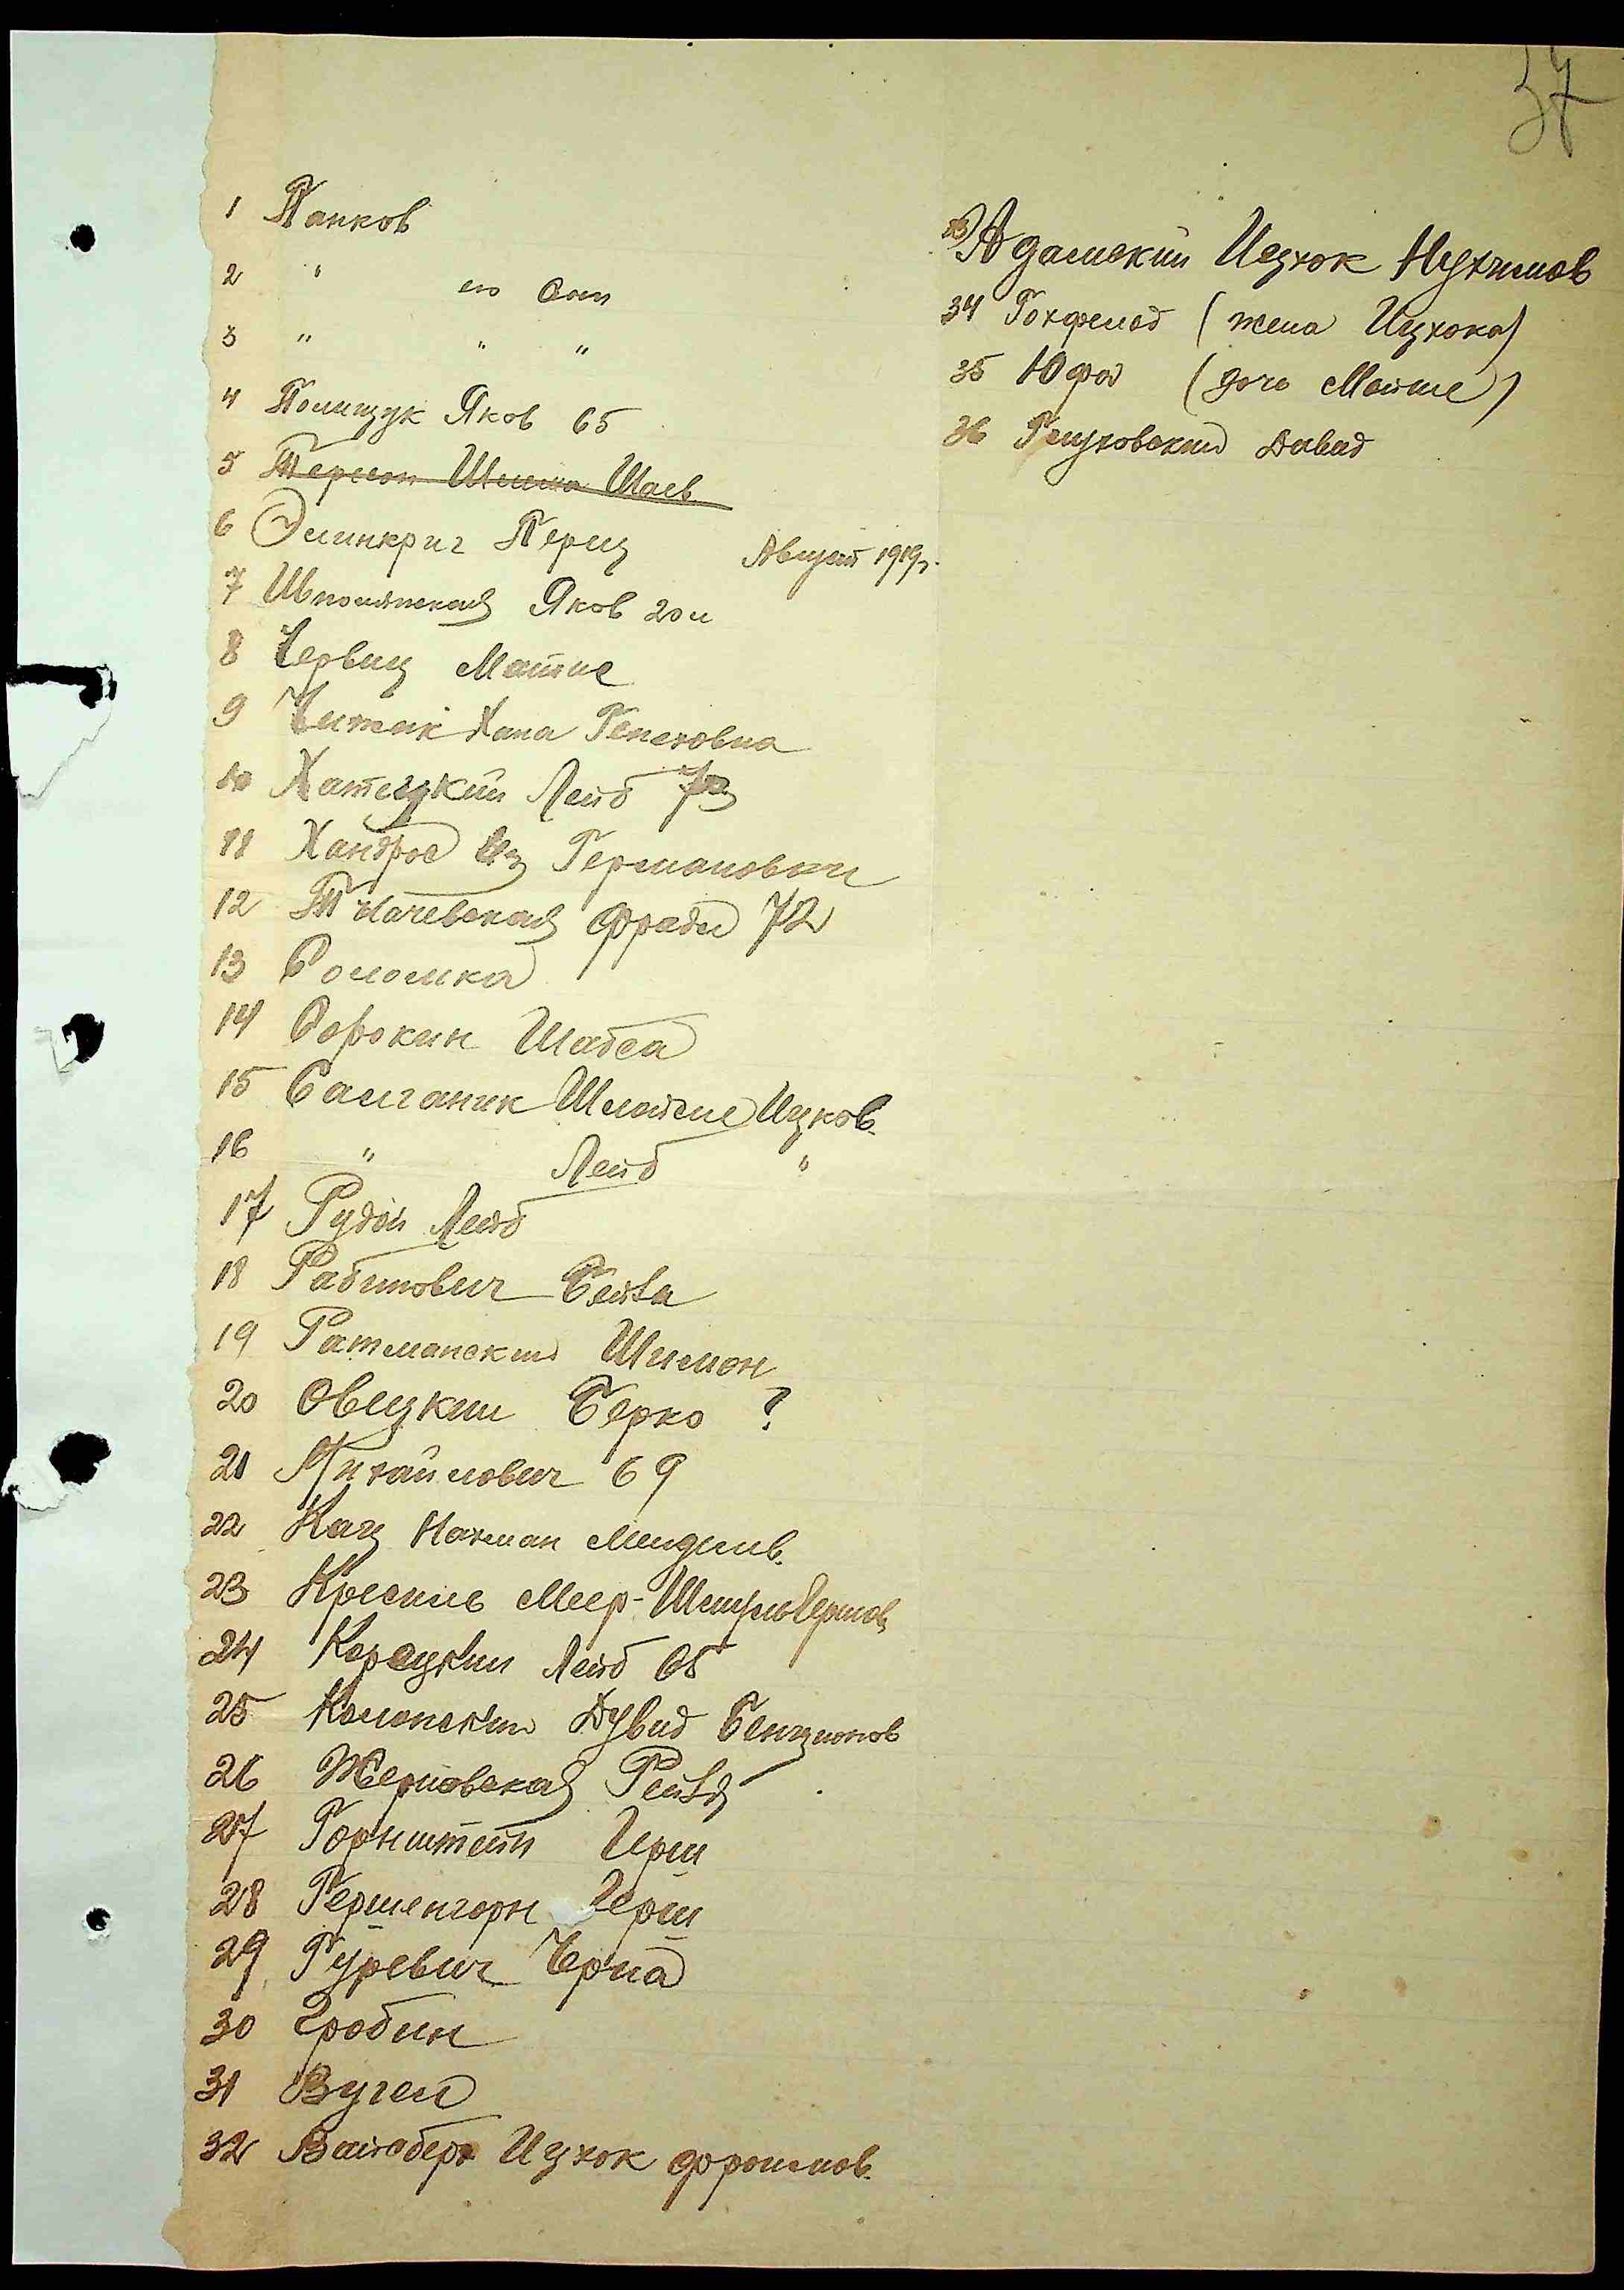 37
1 Панков
2 " его сын
3 " " "
4 Полищук Яков 65
5 Терсон Шлиома Шаев
6 Элинкриг Перец Август 1919г.
7 Шполянская Яков 20 л
8 Червиц Мотие
9 Чижик Хана Генеховна
10 Хатецкий Лейб 70
11 Хандрос Иц Германович
12 Ткачевская Фрада 72
13 Соломка
14 Сорокин Шабса
15 Салганик Шлойме Ицков.
16 " Лейб "
17 Рудой Лейб
18 Рабинович Бейла
19 Ратманский Шимон
20 Овецкий Берко ?
21 Михайлович 69
22 Кац Нахман Мендлив.
23 Кресель Меер-Шмуль Гершов
24 Корецкий Лейб 65
25 Колонский Дувид Бенционов
26 Жерновская Рейзя
27 Горнштейн Герш
28 Гершенгорн Герш
29 Гуревич Черна
30 Гробин
31 Вугел
32 Вайсберг Ицхок Фроимов.
33 Адамский Ицхок Нухимов
34 Гохфельд (жена Ицхока)
35 Юфа (дочь Мойше)
36 Глуховский Давид